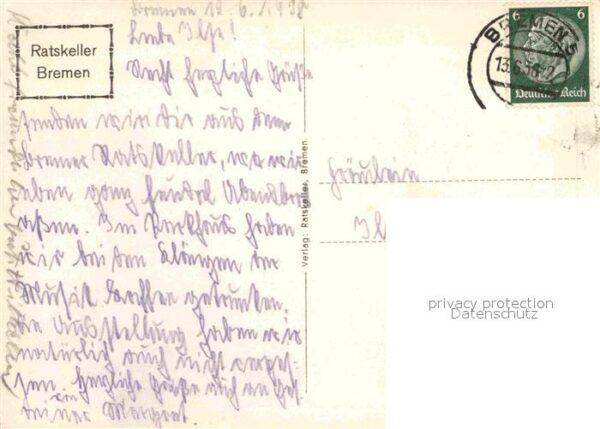 Ratskeller
Bremen
Bremen 12.6.1938
Liebe Ilse!
Recht herzliche Grüße
senden wir Dir aus dem
Bremer Ratskeller, wo wir
eben ganz feudal Abendbrot
aßen. Im Parkhaus haben
wir bei den Klängen der
Musik Kaffee getrunken.
Die Ausstellung haben wir
natürlich auch nicht verges-
sen. Herzliche Grüße auch an
Deine Margret.
Verlag: Ratskeller, Bremen
BREMEN 5
13.6.38
6 6
Deutsches Reich
Fräulein
privacy protection
Datenschutz